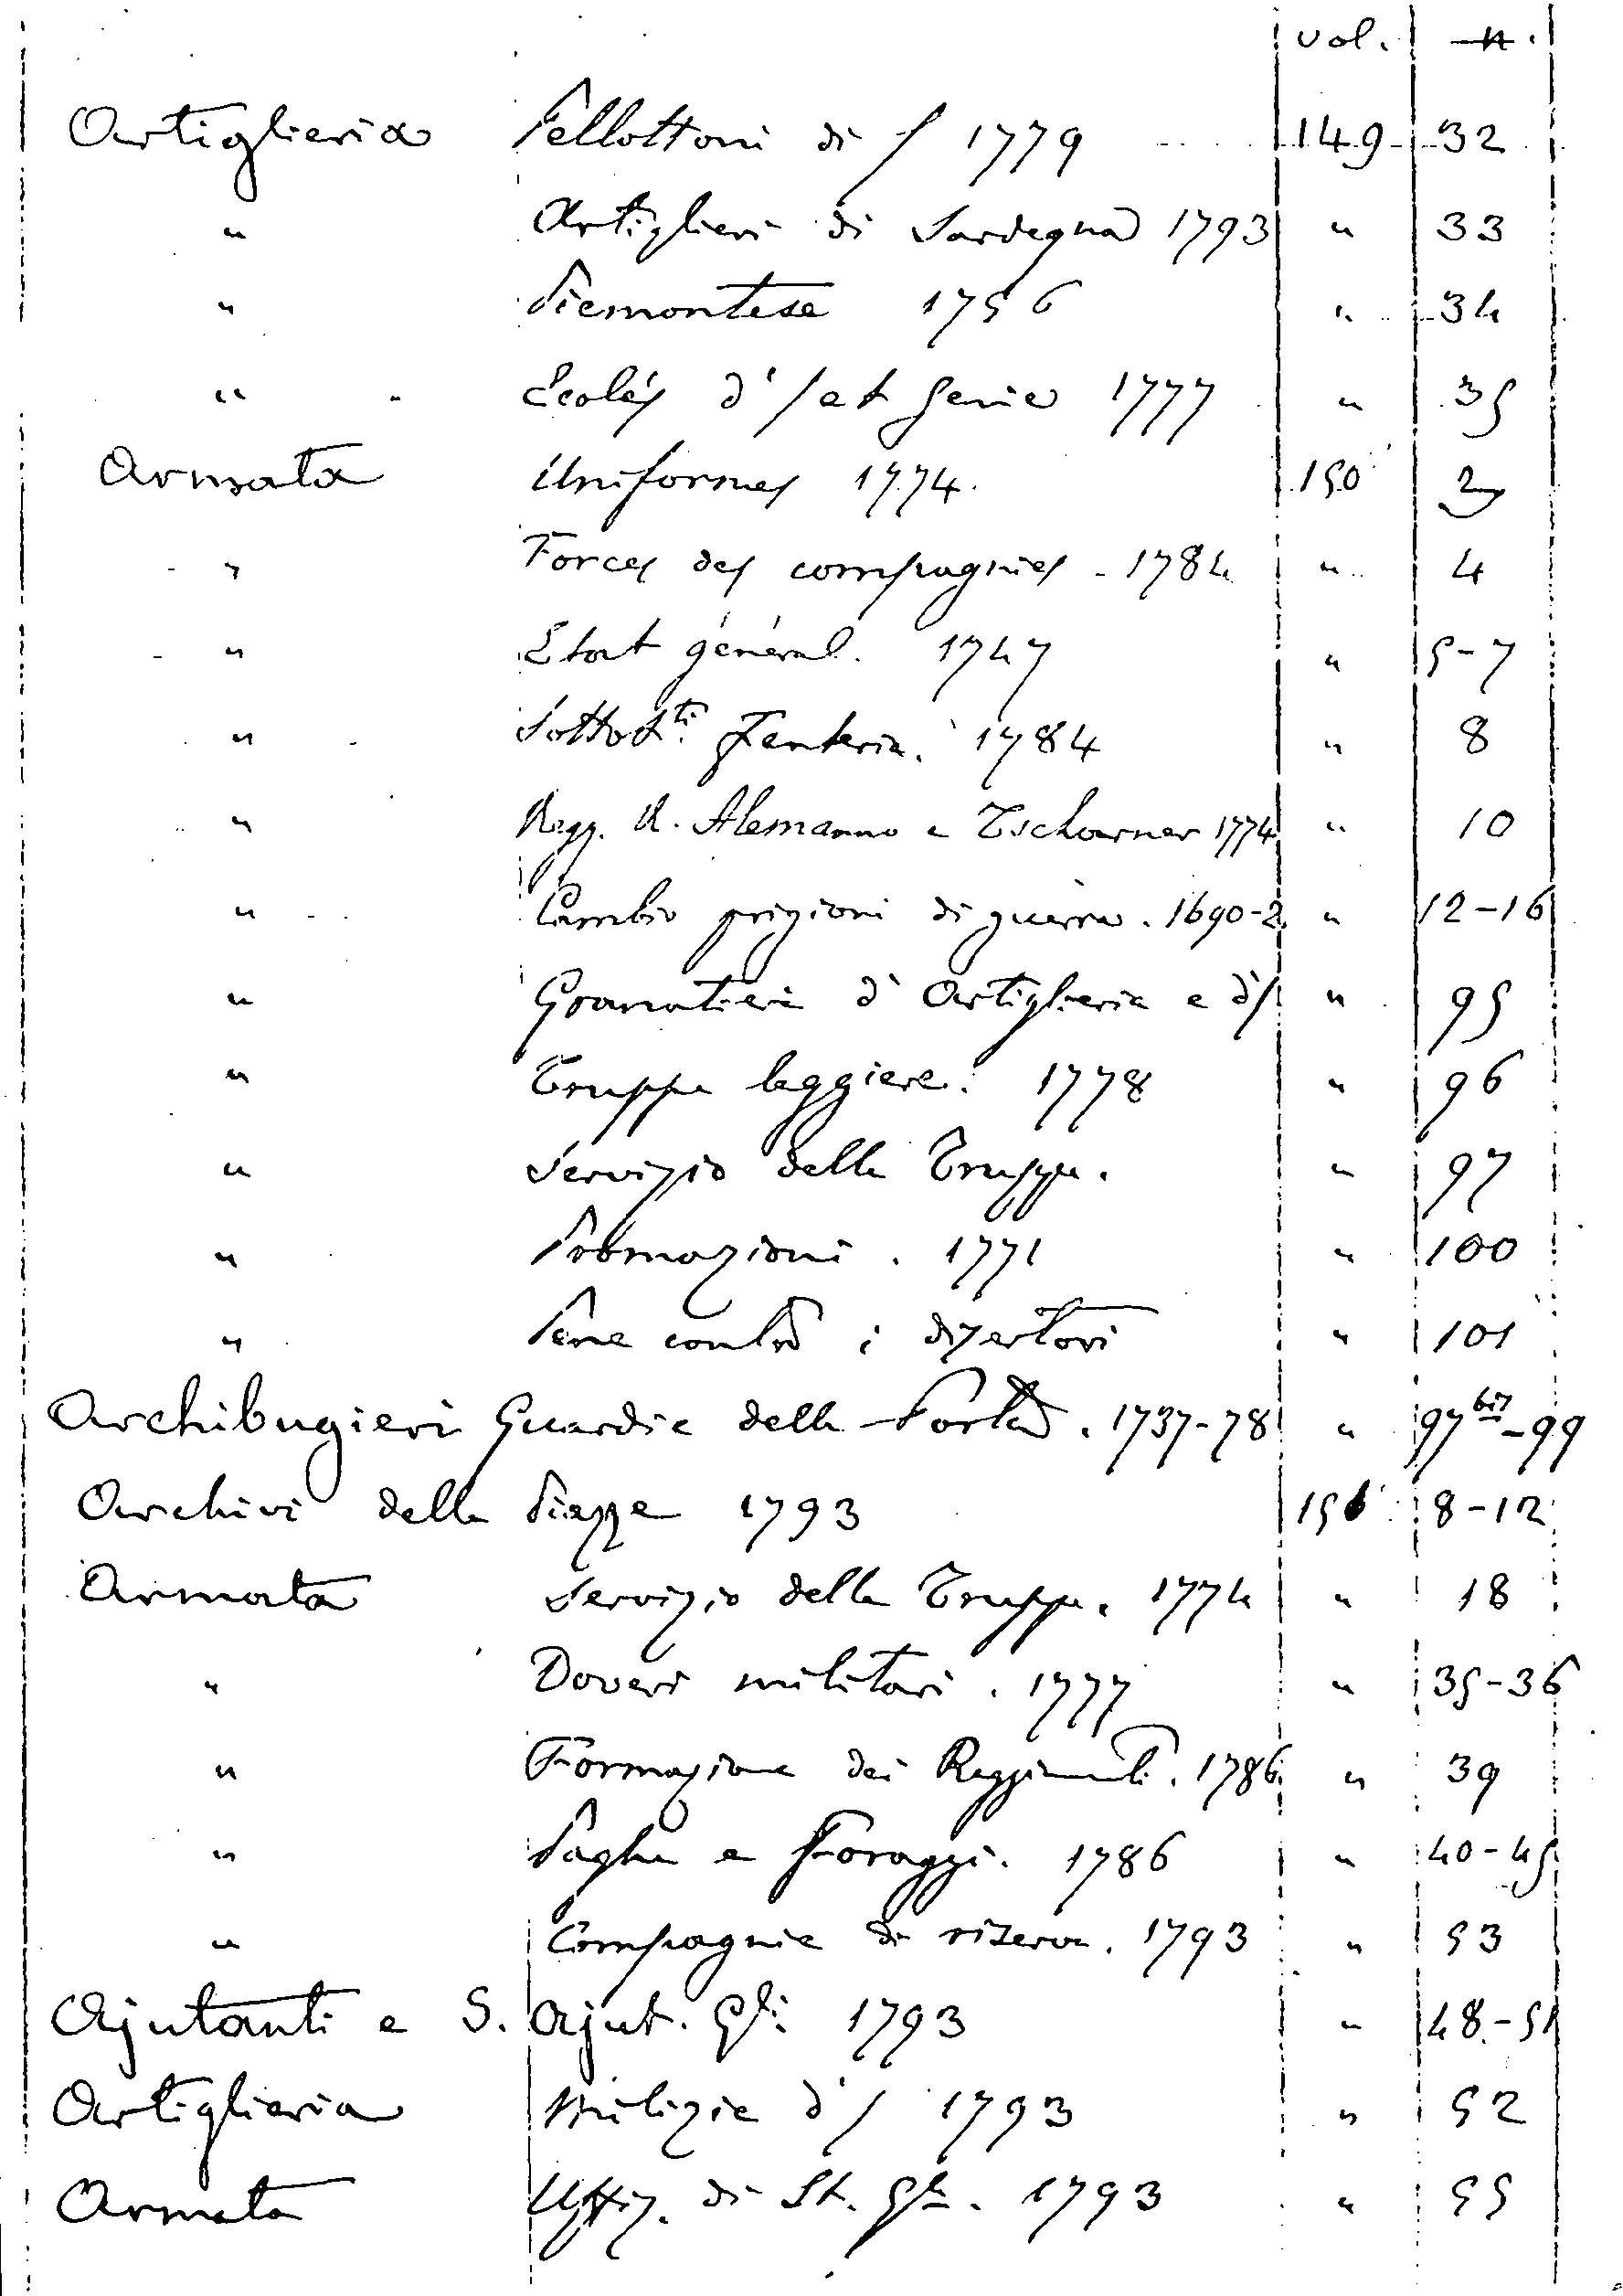 vol. n.
Artiglieria Pellottoni di / 1779 149 32
" Artiglieri di Sardegna 1793 " 33
" Piemontese 1756 " 34
" Ecoles d'/ et Genie 1777 " 35
Armata Uniformes 1774. 150
" Forces des compagnies - 1784 " 4
" Etat général. 1747 " 5-7
" Fanteria. 1784 " 8
" Regg. R. Alemanno e Tscharner 1774 " 10
" Cambio prigioni di guerra. 1690-2 " 12-16
" Granatieri d'Artiglieria e d'/ " 95
" Truppe leggiere. 1778 " 96
" Servizio delle Truppe. " 97
" Promozioni. 1771 " 100
" Pene contro i disertori " 101
Archibugieri Guardie della Porta. 1737-78 " 97bis-99
Archivi delle Piazze 1793 8-12
Armata Servizio della Truppa. 1774 " 18
" Doveri militari. 1777 " 35-36
" Formazione dei Reggimenti. 1786 " 39
" Paghe e Foraggi. 1786 " 40-45
" Compagnie di riserva. 1793 " 53
Ajutanti e S. Ajut. Gli. 1793 " 48-51
Artiglieria Milizie d'/ 1793 " 52
Armata Uffiz. di St. Gle. 1793 " 55